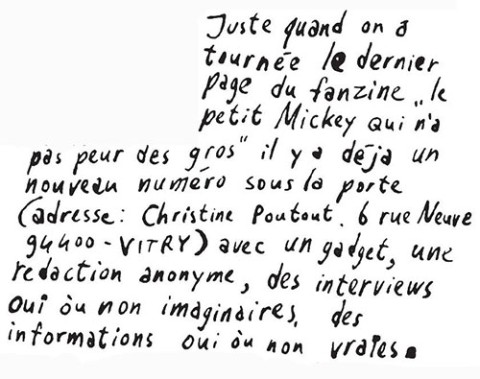 Juste quand on a
tournée le dernier
page du fanzine „le
petit Mickey qui n'a
pas peur des gros" il y a déja un
nouveau numéro sous la porte
(adresse: Christine Poutout. 6 rue Neuve
94400 - VITRY) avec un gadget, une
redaction anonyme, des interviews
oui òu non imaginaires, des
informations oui òu non vraies.